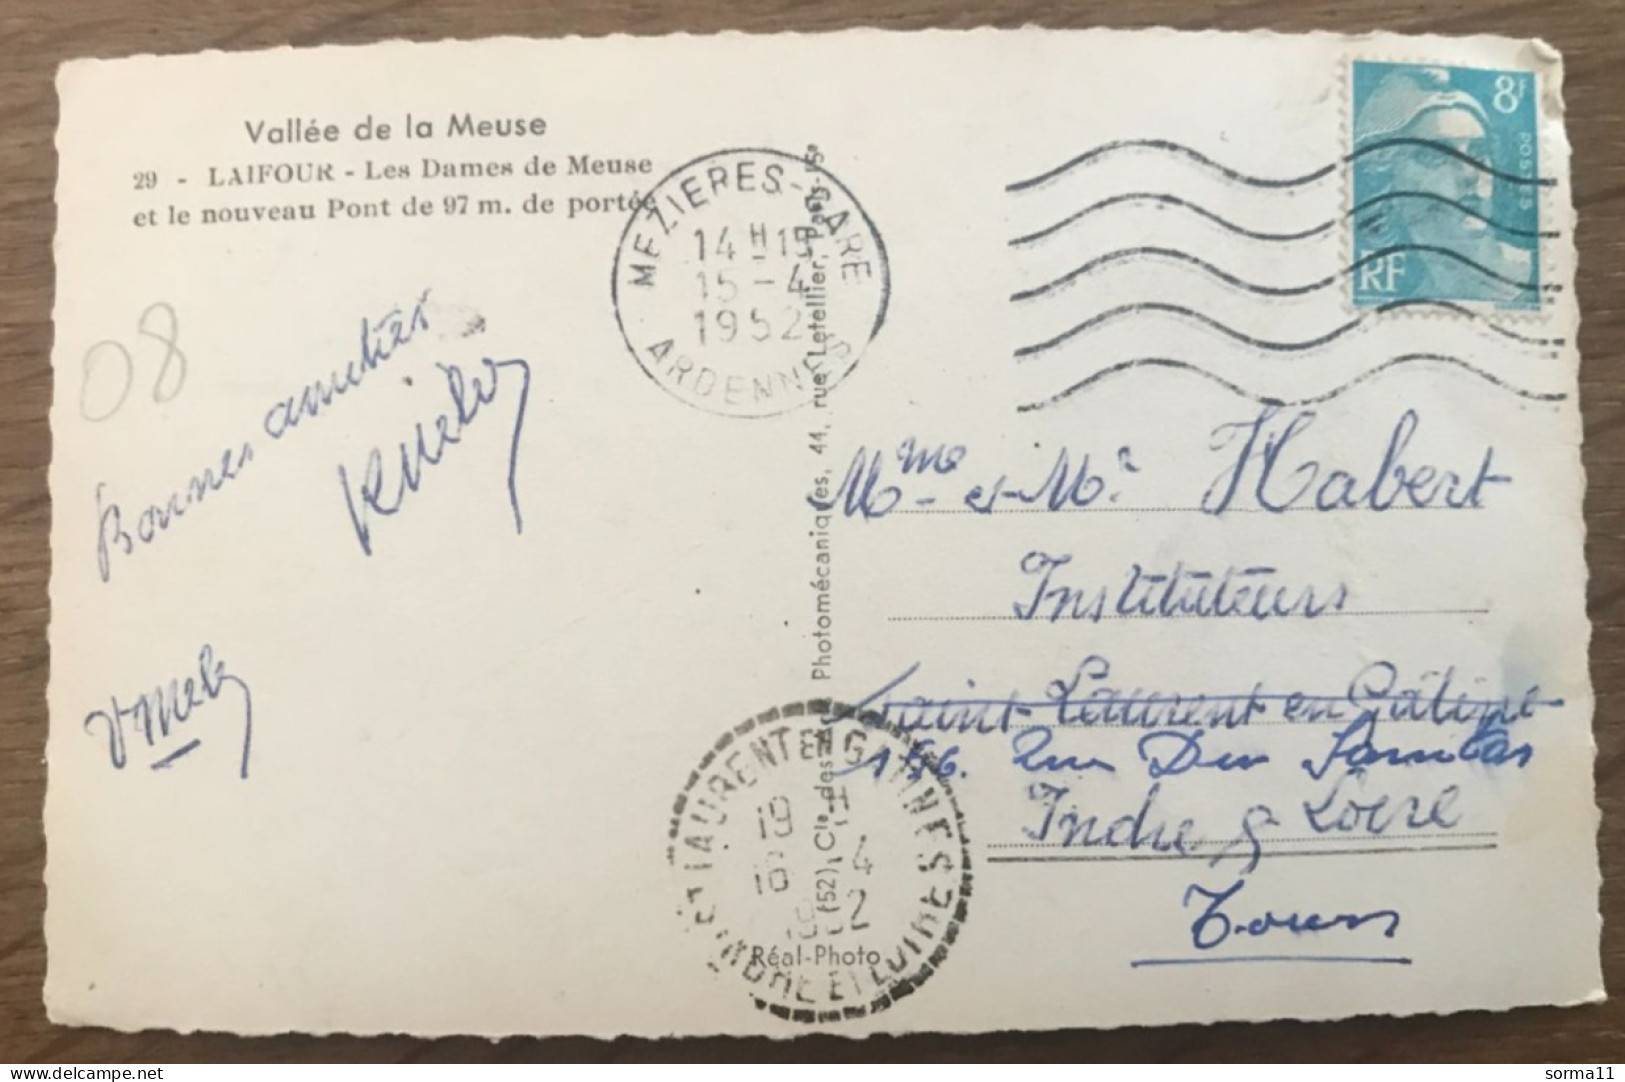 Vallée de la Meuse
29 - LAIFOUR - Les Dames de Meuse
et le nouveau Pont de 97 m. de portée
08
Bonnes amitiés
MEZIERES-GARE
14 H 15
15 - 4
1952
ARDENNES
8F
POSTES
RF
(52) Cie des Photomécaniques, 44, rue Letellier, Paris-15e
Mme et Mr Habert
Instituteurs
Saint-Laurent en Gâtine
Rue Du
Indre & Loire
Tours
ST LAURENT EN GATINES
19 H
16 4
1952
INDRE ET LOIRE
Réal-Photo
sorma11